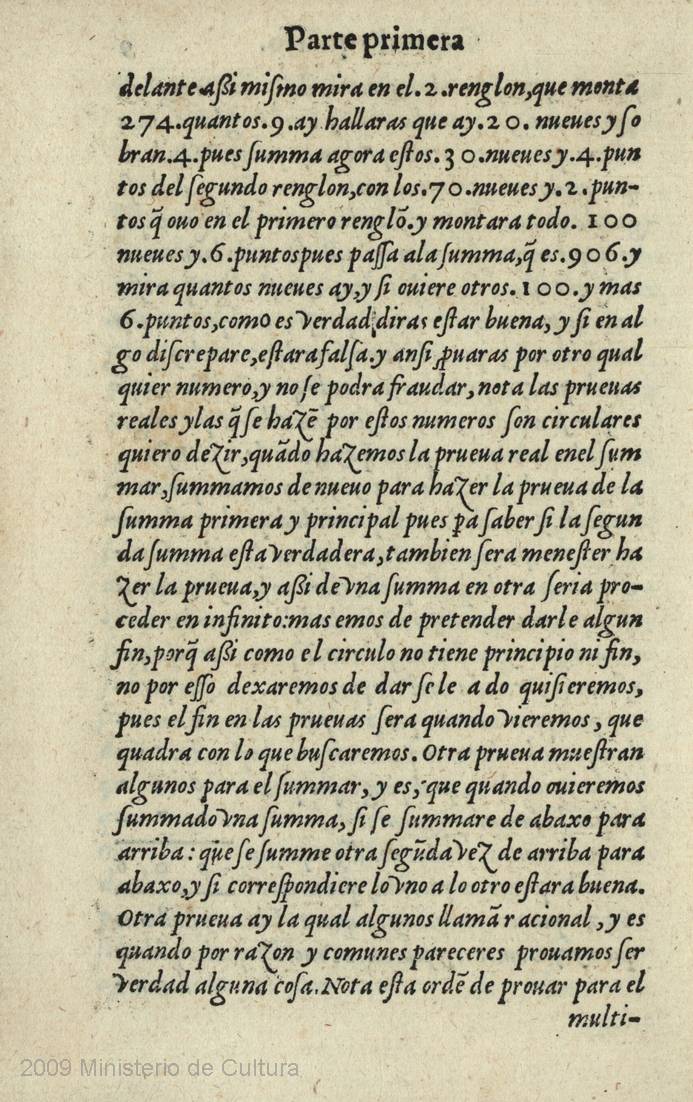 Parte primera
delante aßi miſmo mira en el.2.renglon,que monta
274.quantos.9.ay hallaras que ay.20. nueues y ſo
bran.4.pues ſumma agora eſtos.30.nueues y.4.pun
tos del ſegundo renglon,con los.70.nueues y.2.pun-
tos q̃ ouo en el primero renglõ.y montara todo. 100
nueues y.6.puntos pues paſſa ala ſumma,q̃ es.906.y
mira quantos nueues ay,y ſi ouiere otros.100.y mas
6.puntos,como es verdad,diras eſtar buena, y ſi en al
go diſcrepare,eſtara falſa.y anſi ꝓuaras por otro qual
quier numero,y no ſe podra fraudar, nota las prueuas
reales y las q̃ ſe hazẽ por eſtos numeros ſon circulares
quiero dezir,quãdo hazemos la prueua real enel ſum
mar,ſummamos de nueuo para hazer la prueua de la
ſumma primera y principal pues pa ſaber ſi la ſegun
da ſumma eſta verdadera,tambien ſera meneſter ha
zer la prueua,y aßi de vna ſumma en otra ſeria pro-
ceder en infinito:mas emos de pretender darle algun
fin,porq̃ aßi como el circulo no tiene principio ni fin,
no por eſſo dexaremos de dar ſe le a do quiſieremos,
pues el fin en las prueuas ſera quando vieremos, que
quadra con lo que buſcaremos. Otra prueua mueſtran
algunos para el ſummar, y es, que quando ouieremos
ſummado vna ſumma, ſi ſe ſummare de abaxo para
arriba: que ſe ſumme otra ſegũda vez de arriba para
abaxo,y ſi correſpondiere lo vno a lo otro eſtara buena.
Otra prueua ay la qual algunos llamã racional, y es
quando por razon y comunes pareceres prouamos ſer
verdad alguna coſa. Nota eſta ordẽ de prouar para el
multi-
2009 Ministerio de Cultura